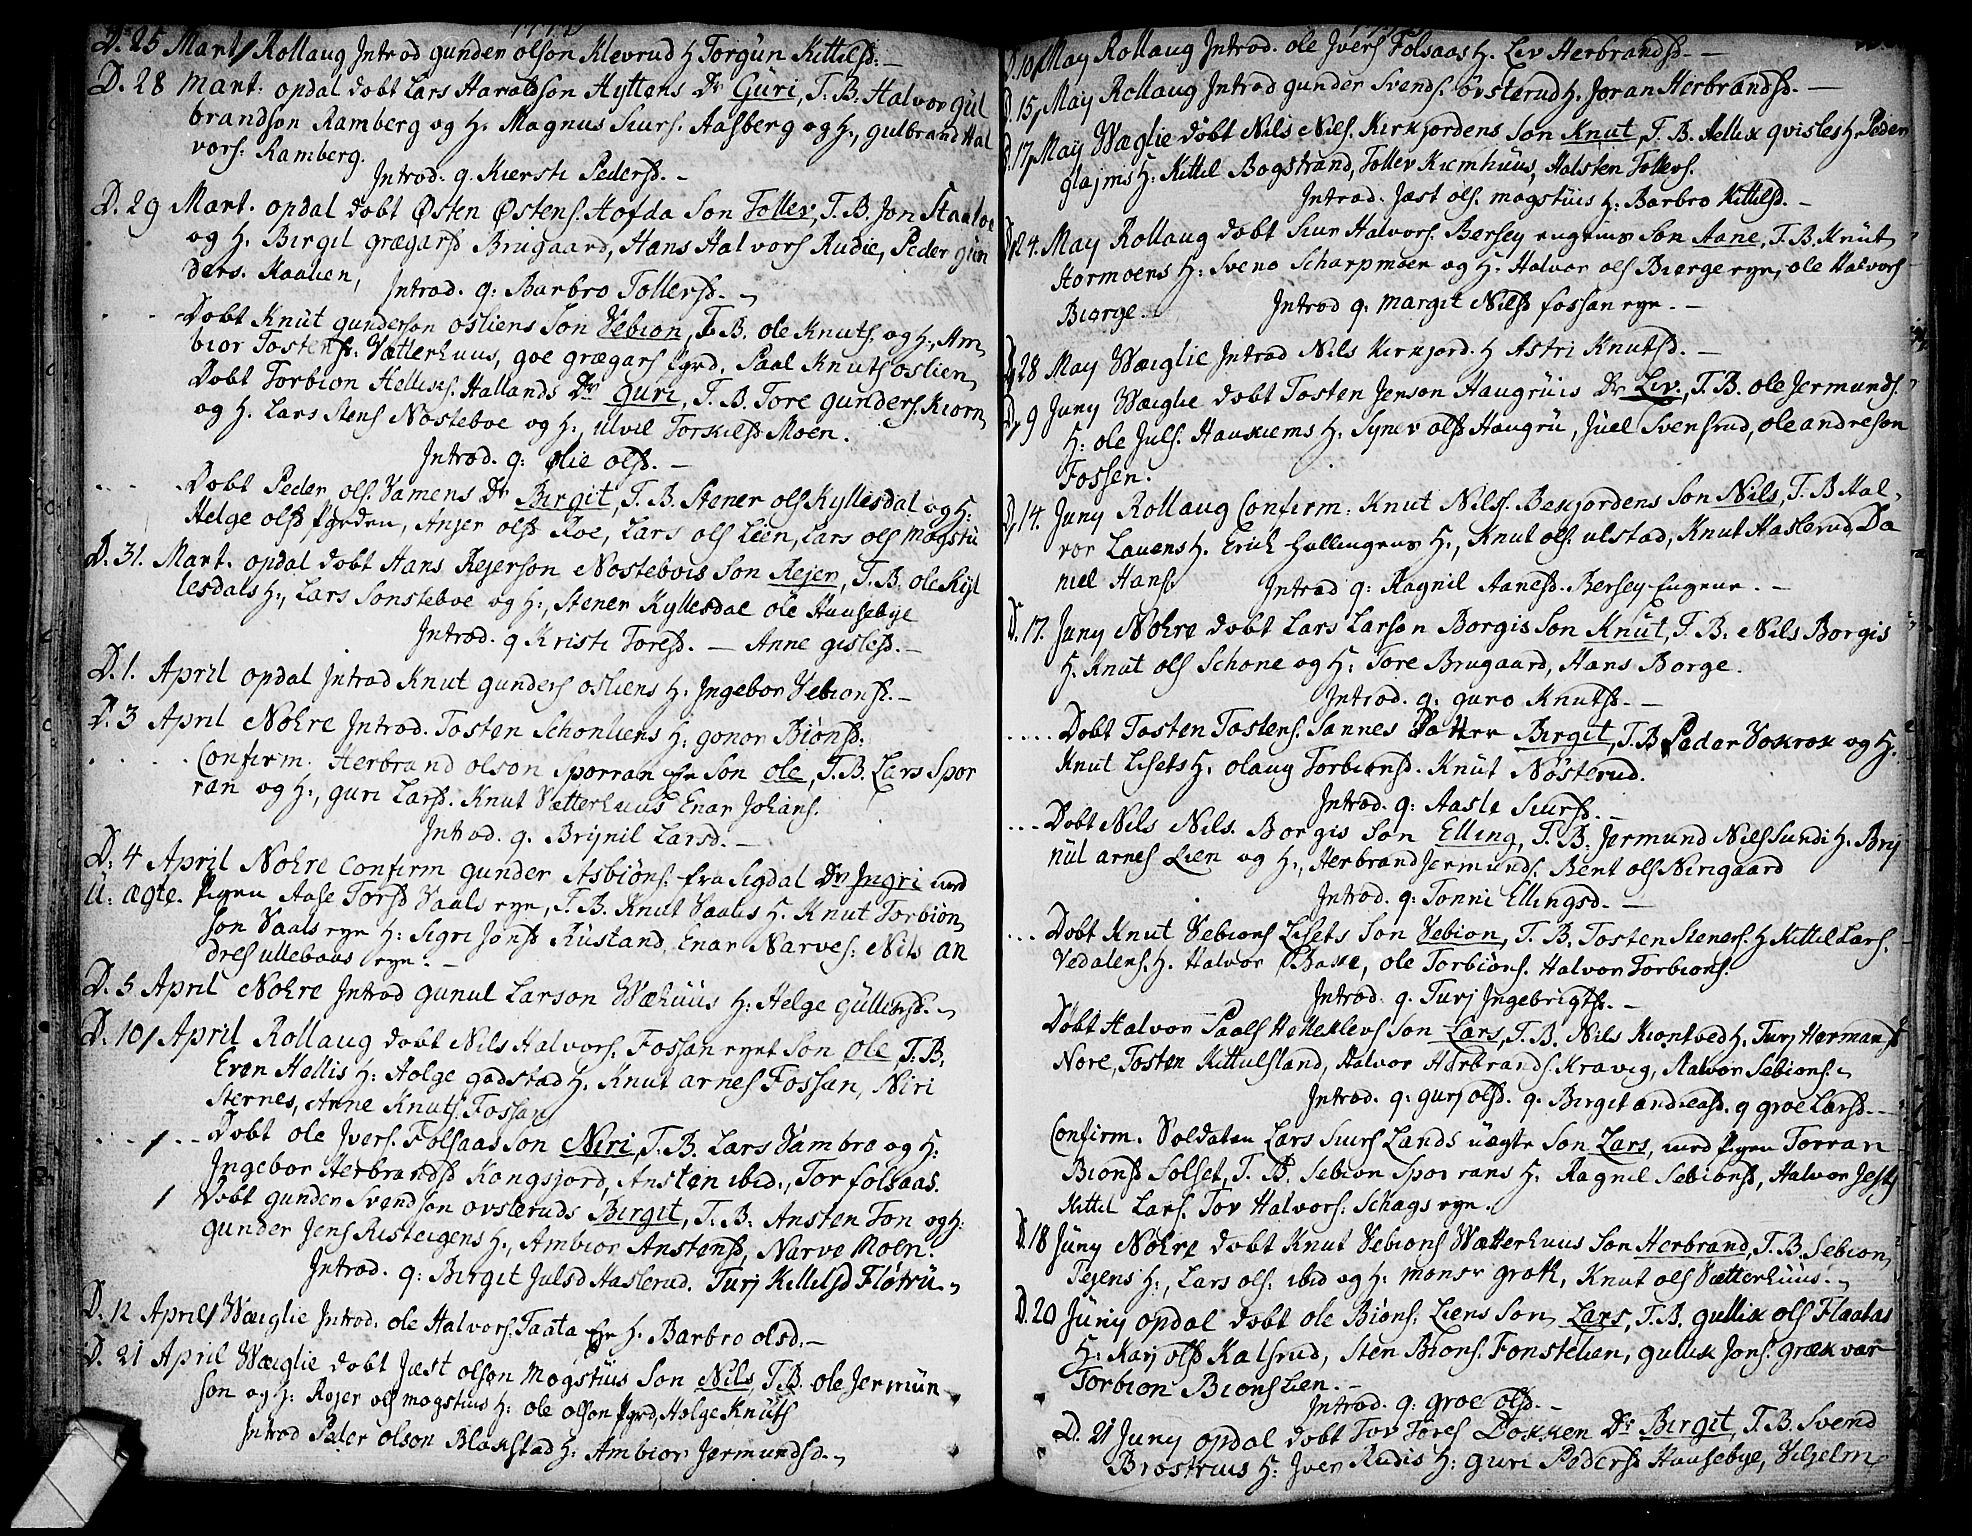 D. 25 Mart/ Rollaug Introd gunder olson Klevrud H Torgün Kittelsd. –
D. 28 Mart: opdal dobt Lars Haraldson Hyttens Dr Güri, T. B. Halvor gül
brandson Ramberg og H. Magnus Siurs. Aasberg og H., gulbrand Hal
vors: Ramberg.
Introd. q. Kiersti Pedersd. –
D. 29 Mart. opdal dobt Østen Østens. Hofda Son Tollev, T. B. Jon Staaloe
og H. Birgit grægarsd Brügaard, Hans Halvors Rudie, Peder gün
ders. Kaauen, Introd. q: Barbro Tollersd.
Dobt Knüt gunderson osliens Son Vebion, T. B. ole Knuts. og H., Am
bior Tostensd. Vætterhuus, goe grægars Pgrd. Paal Knuts oslien
Dobt Torbion Helliks. Hallands Dr Guri, T. B. Tore gunders. Kiorn
og H. Lars Stens Nosteboe og H: ulvil Torkilsd Moen.
Introd. q: olie olsd. –
Dobt Peder ols. Vamens Dr Birgit, T. B. Stener ols Kyllesdal og H:
Helge olsd Pgrden, Anser olsd Roe, Lars ols Lien, Lars ols Mogstü
D. 31. Mart. opdal dobt Hans Rejerson Nostebois Son Rejer, T. B. ole Kyl
lesdals H:, Lars Sonsteboe og H:, Stener Kyllesdal ole Haasebye
Introd. q Kristi Toresd. – Anne gislesd. –
D. 1. April opdal Introd Knut gunders osliens H: Ingebor Vebionsd. –
D. 3 April Nohre Introd. Tosten Schonliens H: gonor Bionsd:
Confirm. Herbrand olson Sporran Son ole, T. B. Lars Spor
ran og H:, guri Larsd. Knut Vætterhuus Enar Johans.
Introd. q. Brynil Larsd. –
D: 4 April Nohre Confirm gunder Asbiøns. fra Sigdal Dr Ingri med
U: ægte. Pigen Aase Torsd Vaals eyn, T. B. Knut Vaals H. Knut Torbion
son Vaals eyn H: Sigri Jonsd Rustand, Enar Narves: Nils an
dres ullebaas eyn. –
D. 5 April Nohre Introd gunul Larson Wæhuus H: Helge güllensd.
D. 10/ April Rollaug dobt Nils Halvors. Fossan eyet Son ole T. B.
Even Hellis H: Holge gadstad H. Knut arnes Fossan, Niri
Sternes, Anne Knuts. Fossan
Dobt ole Ivers. Folsaas Son Niri, T. B. Lars Vambro og H:
Ingebor Herbrandsd Kongsjord, Ansten ibid., Tor folsaas.
Dobt gunder Svendson ovsteruds Birgit, T. B: Ansten Ton og H:
gunder Jens Risteigens H., Ambior Anstensd, Narve Moen.
Introd. q: Birgit Julsd Haslerud. Turj Kittelsd Fløtrü.
D. 12 April/ Wæglie Introd. ole Halvors. Taata H. Barbro olsd. –
D. 21 April Wæiglie dobt Jæst olson Mogstüis Son Nils, T. B. ole Jermün
son og H: Rejer ols mogstuis H: ole olson Pgrd, Holge Knuts
Introd Peder olson Blakstad H: Ambior Jermundsd.
D. 10/ May Rollaug Introd. ole Ivers Folsaas H. Liv Herbrandsd. –
D. 15, May Rollaug Introd gunder Svends. övsterud H. Joran Herbrandsd. –
D. 17, May Wæglie döbt Nils Niels. Kirkjordens Son Knut, T. B. Hellik qvisles H. Peder
glajms H: Kittil Bogstrand, Tollev Kiemhuus, Halsten Tollevs.
Introd. Jæst ols. mogstuis H: Barbro Kittelsd. –
D. 24. May Rollaug dobt Siur Halvors. Bersey eugens Son Aane, T. B. Knüt
Stormoens H: Sveno Scharpmoen og H. Halvor ols Biørge eyn, ole Halvors
Biørge. Introd q: margit Nilsd fossan eye. –
D. 28 May Wæiglie Introd Nils Kirkjord. H Astri Knutsd. –
D. 9 Juny Wæiglie dobt Tosten Jenson Haugrüis Dr Liv, T. B. ole Jermunds.
H: ole Juls. Haukiems H: Synev olsd Haugrü, Jüel Svensrud, ole andreson
Fossen.
D. 14. Juny Rollaug Confirm: Knut Nils. Bekjordens Son Nils, T. B Hal
vor Lauens H. Erick Hallingens H., Knut ols. ulstad, Knut Haslerud Da
niel Hans. Introd q: Ragnil Aanesd. Bersey Eugene. –
D. 17. Juny Nohre dobt Lars Larson Borgis Son Knut, T. B. Nils Borgis
H. Knut ols Schone og H: Tore Brugaard, Hans Borge.
Introd. q: guro Knutsd. –
Dobt Tosten Tostens. Sannes Datter Birgit, T. B Peder Vokrok og H.
Knut Lisets H. olaug Torbionsd. Knut Nösterud.
Introd. q: Aasle Siursd. –
Dobt Nils Nils. Borgis Son Elling, T. B. Jermund Niels Sundi H. Brij
nul arnes Lien og H:, Herbrand Jermunds. Bent ols Nirigaard
Introd. q: Tonni Ellingsd. –
Dobt Knut Vebions Lisets Son Vebion, T. B. Tosten Steners. H Kittel Lars.
Vedalens. H. Halvor Bakke, ole Torbiøns. Halvor Torbions.
Introd. q. Turj Ingebrigtsd. –
Döbt Halvor Paals Helleklevs Son Lars, T. B. Nils Kiontved H. Turj Hermansd
Nore, Tosten Kittulsland, Halvor Herbrands. Kravig, Halvor Sebions.
Introd. q: gurj olsd. q. Birgit andreasd. q groe Larsd. –
Confirm. Soldaten Lars Siurs Lands uægte Son Lars, med Pigen Torran
Bionsd Solset, T. B. Sebion Spor rans H. Ragnil Sebionsd, Halvor Jests
Kittel Lars. Tov Halvors. Schags eyn.
D. 18 Juny Nohre dobt Knut Vebions Wætterhuus Son Herbrand, T. B. Sebion
Tejens H:, Lars ols: ibid og H: monsr grotk, Knut ols Vætterhuus.
D. 20 Juny opdal dobt ole Bions: Liens Son Lars, T. B. gullik ols Flaatas
H: Karj olsd Kalsrud, Sten Bions. Fonstelien, gullik Jons. grækvar
Torbion Bions Lien. –
Introd. q: groe olsd. –
D. 21 Juny opdal dobt Tov Tores Dokken Dr Birgit, T. B. Svend
Brostruus H: Iver Rudis H: guri Pedersd Haasebye, Vilhelm